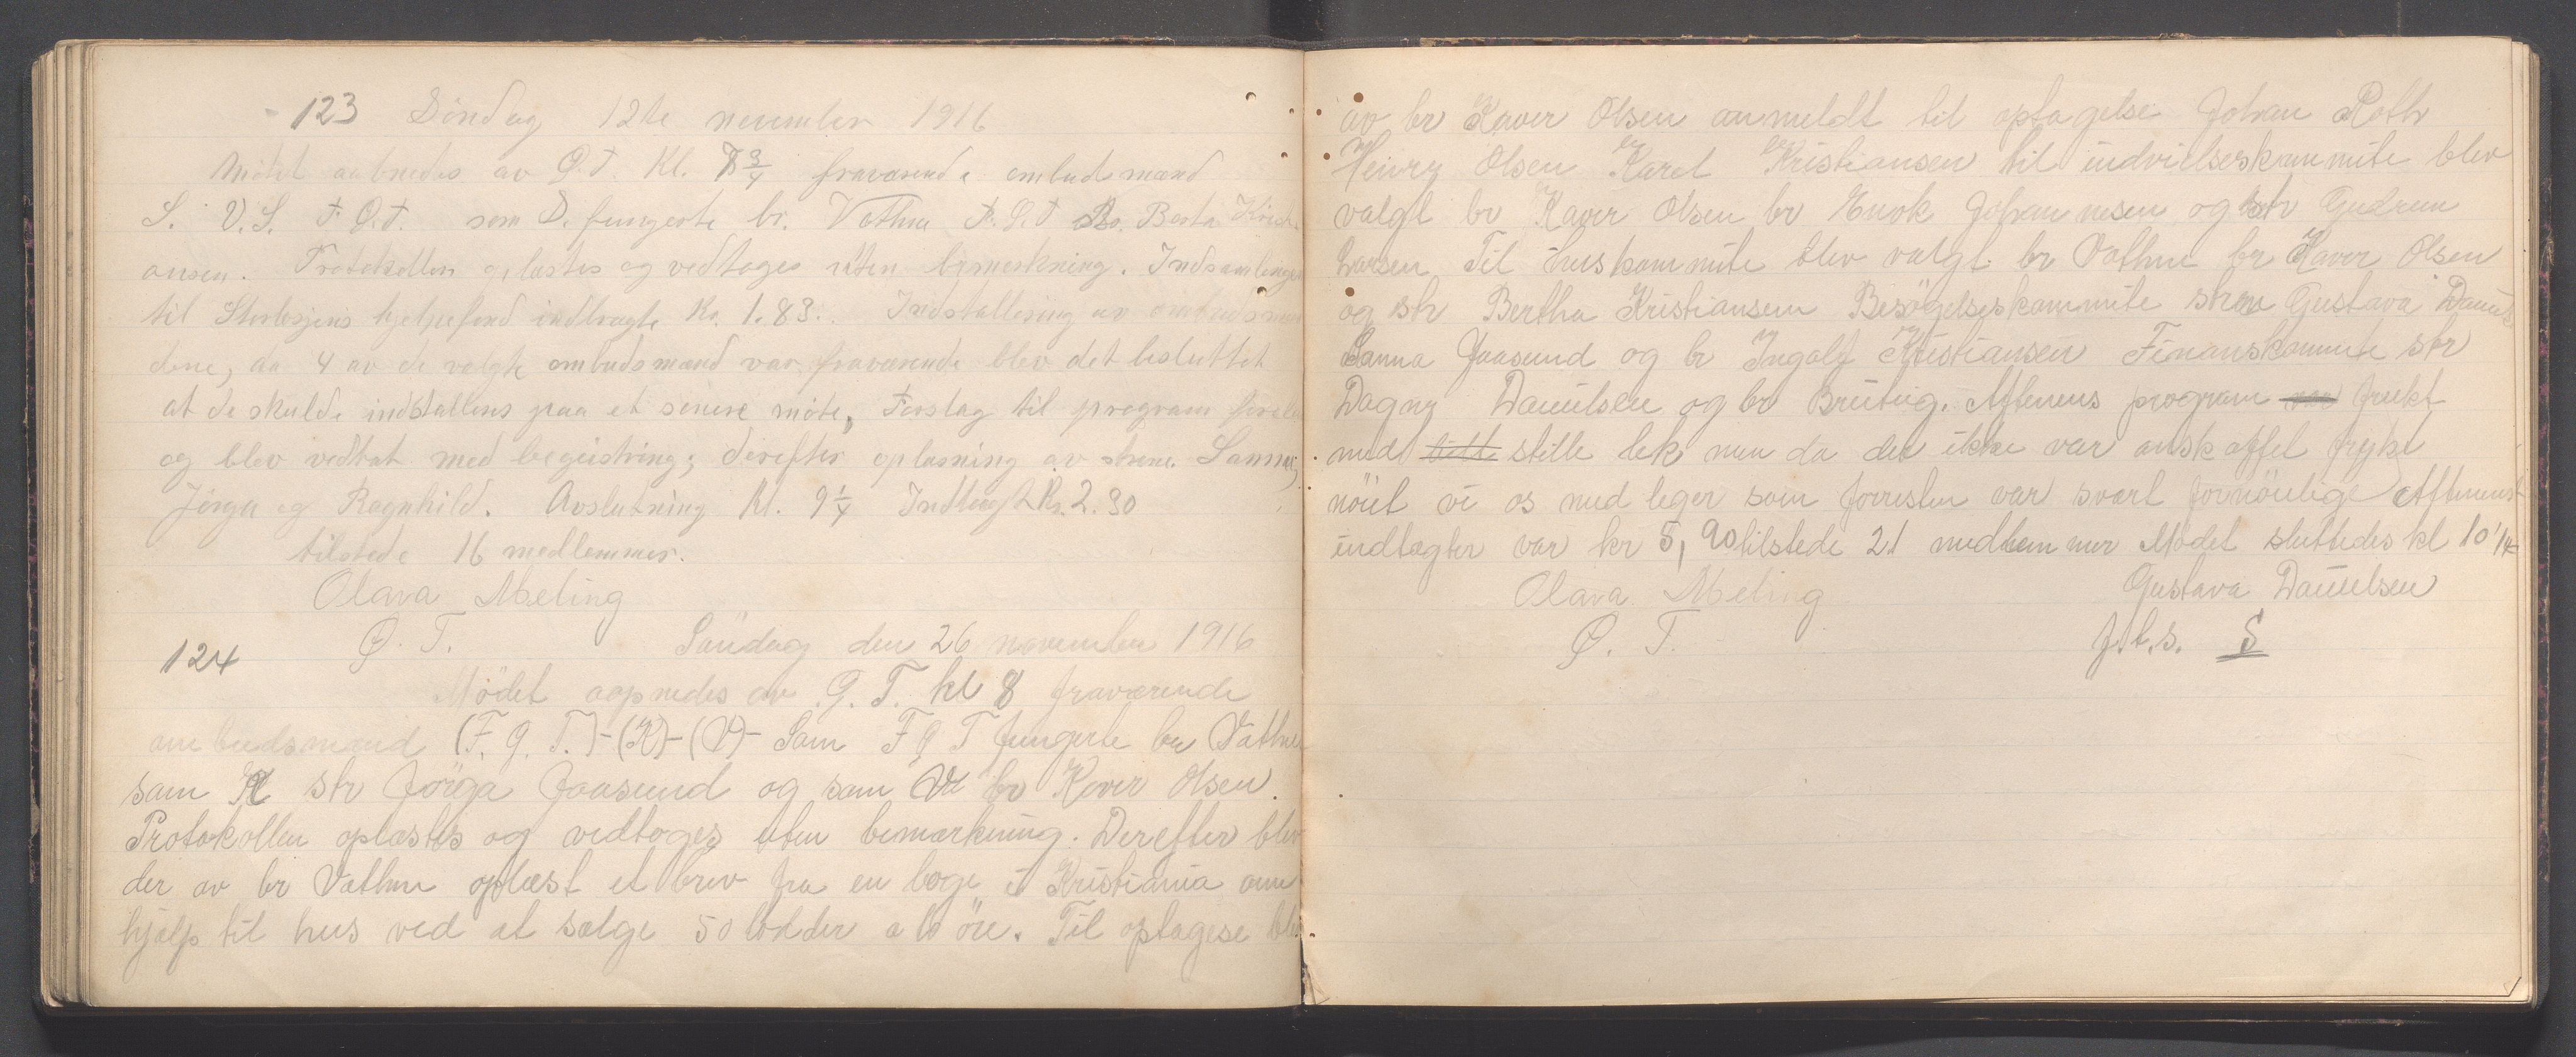 123 Söndag 12te november 1916
Mötet aabnedes av G.T. Kl. 7 3/4 fraværende ombudsmænd
S. V.S. F.G.T. som S. fungerte br. Vathne F.G.T Br. Berta Kristi
ansen. Protokollen oplæstes og vedtoges uten bemerkning. Indsamlingen
til Storlosjens hjelpefond indbragte Kr. 1.83. Installering av ombudsmæn
dene, da 4 av de valgte ombudsmænd var fraværende blev det besluttet
at de skulde installeres paa et senere möte, Forslag til program
og blev vedtat med begeistring; derefter oplæsning av strene. Sanna,
Jörga og Ragnhild. Avslutning Kl. 9 1/4 Indtægt Kr. 2.30
tilstede 16 medlemmer.
Olava Meling
G. T.
124 Söndag den 26 november 1916
Mödet aapnedes av G. T. kl 8 fraværende
ombudsmænd (F. G. T.)-(K)-(V)- Som F G T fungerte br Vathne
som K str Jörga Jaasund og som V br Kaver Olsen.
Protokollen oplæstes og vedtoges uten bemærkning. Derefter blev
der av br Vathne oplæst et brev fra en loge i Kristiania om
hjælp til hus ved at sælge 50 lodder a 10 öre. Til optagese blev
av br Kaver Olsen anmeldt til optagelse Johan Roth
Henry Olsen Karel Kristiansen til indvielseskommite blev
valgt br Kaver Olsen br Enok Johannesen og str Gudrun
Larsen Til huskommite blev valgt br Vathne br Kaver Olsen
og str Bertha Kristiansen Besögelseskommite strene Gustava Daniels
Sanna Jaasund og br Ingolf Kristiansen Finanskommite str
Dagny Danielsen og br Brüteig. Aftenens program frukt
med stille lek men da det ikke var anskaffet frykt
nöiet vi os med leger som forresten var svært fornöielige Aftenens
indtægter var kr 5,90 tilstede 21 medlemmer Mödet sluttedes kl 10 1/4
Olava Meling Gustava Danielsen
G. T. f.t.s. S